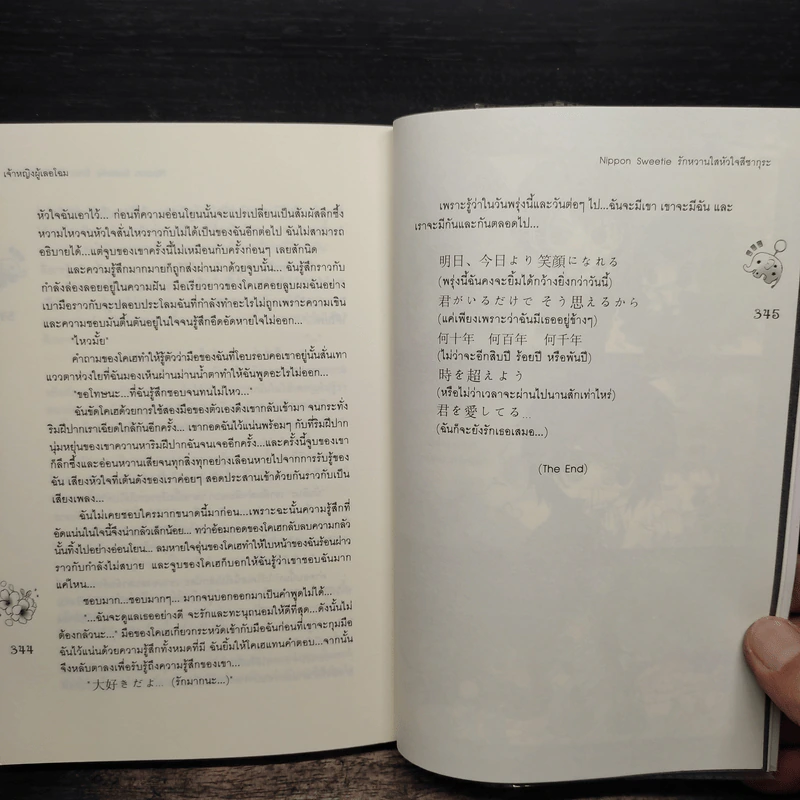 เจ้าหญิงผู้เลอโฉม
หัวใจฉันเอาไว้... ก่อนที่ความอ่อนโยนนั้นจะแปรเปลี่ยนเป็นสัมผัสลึกซึ้ง
หวามไหวจนหัวใจสั่นไหวราวกับไม่ได้เป็นของฉันอีกต่อไป ฉันไม่สามารถ
อธิบายได้...แต่จูบของเขาครั้งนี้ไม่เหมือนกับครั้งก่อนๆ เลยสักนิด
และความรู้สึกมากมายก็ถูกส่งผ่านมาด้วยจูบนั้น... ฉันรู้สึกราวกับ
กำลังล่องลอยอยู่ในความฝัน มือเรียวยาวของโคเฮคอยลูบผมฉันอย่าง
เบามือราวกับจะปลอบประโลมฉันที่กำลังทำอะไรไม่ถูกเพราะความเขิน
และความชอบมันตื้นตันอยู่ในใจจนรู้สึกอึดอัดหายใจไม่ออก...
"ไหวมั้ย"
คำถามของโคเฮทำให้รู้ตัวว่ามือของฉันที่โอบรอบคอเขาอยู่นั้นสั่นเทา
แววตาห่วงใยที่ฉันมองเห็นผ่านม่านน้ำตาทำให้ฉันพูดอะไรไม่ออก...
"ขอโทษนะ...ที่ฉันรู้สึกชอบจนทนไม่ไหว..."
ฉันขัดโคเฮด้วยการใช้สองมือของตัวเองดึงเขากลับเข้ามา จนกระทั่ง
ริมฝีปากเราเฉียดใกล้กันอีกครั้ง... เขากอดฉันไว้แน่นพร้อมๆ กับที่ริมฝีปาก
นุ่มหยุ่นของเขาควานหาริมฝีปากฉันจนเจออีกครั้ง...และครั้งนี้จูบของเขา
ก็ลึกซึ้งและอ่อนหวานเสียจนทุกสิ่งทุกอย่างเลือนหายไปจากการรับรู้ของ
ฉัน เสียงหัวใจที่เต้นดังของเราค่อยๆ สอดประสานเข้าด้วยกันราวกับเป็น
เสียงเพลง...
ฉันไม่เคยชอบใครมากขนาดนี้มาก่อน...เพราะฉะนั้นความรู้สึกที่
อัดแน่นในใจนี้จึงน่ากลัวเล็กน้อย... ทว่าอ้อมกอดของโคเฮกลับลบความกลัว
นั้นทิ้งไปอย่างอ่อนโยน... ลมหายใจอุ่นของโคเฮทำให้ใบหน้าของฉันร้อนผ่าว
ราวกับกำลังไม่สบาย และจูบของโคเฮก็บอกให้ฉันรู้ว่าเขาชอบฉันมาก
แค่ไหน...
ชอบมาก...ชอบมากๆ... มากจนบอกออกมาเป็นคำพูดไม่ได้...
"...ฉันจะดูแลเธออย่างดี จะรักและทะนุถนอมให้ดีที่สุด...ดังนั้นไม่
ต้องกลัวนะ..." มือของโคเฮเกี่ยวกระหวัดเข้ากับมือฉันก่อนที่เขาจะกุมมือ
ฉันไว้แน่นด้วยความรู้สึกทั้งหมดที่มี ฉันยิ้มให้โคเฮแทนคำตอบ...จากนั้น
จึงหลับตาลงเพื่อรับรู้ถึงความรู้สึกของเขา...
"大好きだよ... (รักมากนะ...)"
344
Nippon Sweetie รักหวานใสหัวใจสีซากุระ
เพราะรู้ว่าในวันพรุ่งนี้และวันต่อๆ ไป...ฉันจะมีเขา เขาจะมีฉัน และ
เราจะมีกันและกันตลอดไป...
明日、今日より笑顔になれる
(พรุ่งนี้ฉันคงจะยิ้มได้กว้างยิ่งกว่าวันนี้)
君がいるだけで そう思えるから
(แค่เพียงเพราะว่าฉันมีเธออยู่ข้างๆ)
何十年 何百年 何千年
(ไม่ว่าจะอีกสิบปี ร้อยปี หรือพันปี)
時を超えよう
(หรือไม่ว่าเวลาจะผ่านไปนานสักเท่าไหร่)
君を愛してる...
(ฉันก็จะยังรักเธอเสมอ...)
(The End)
345